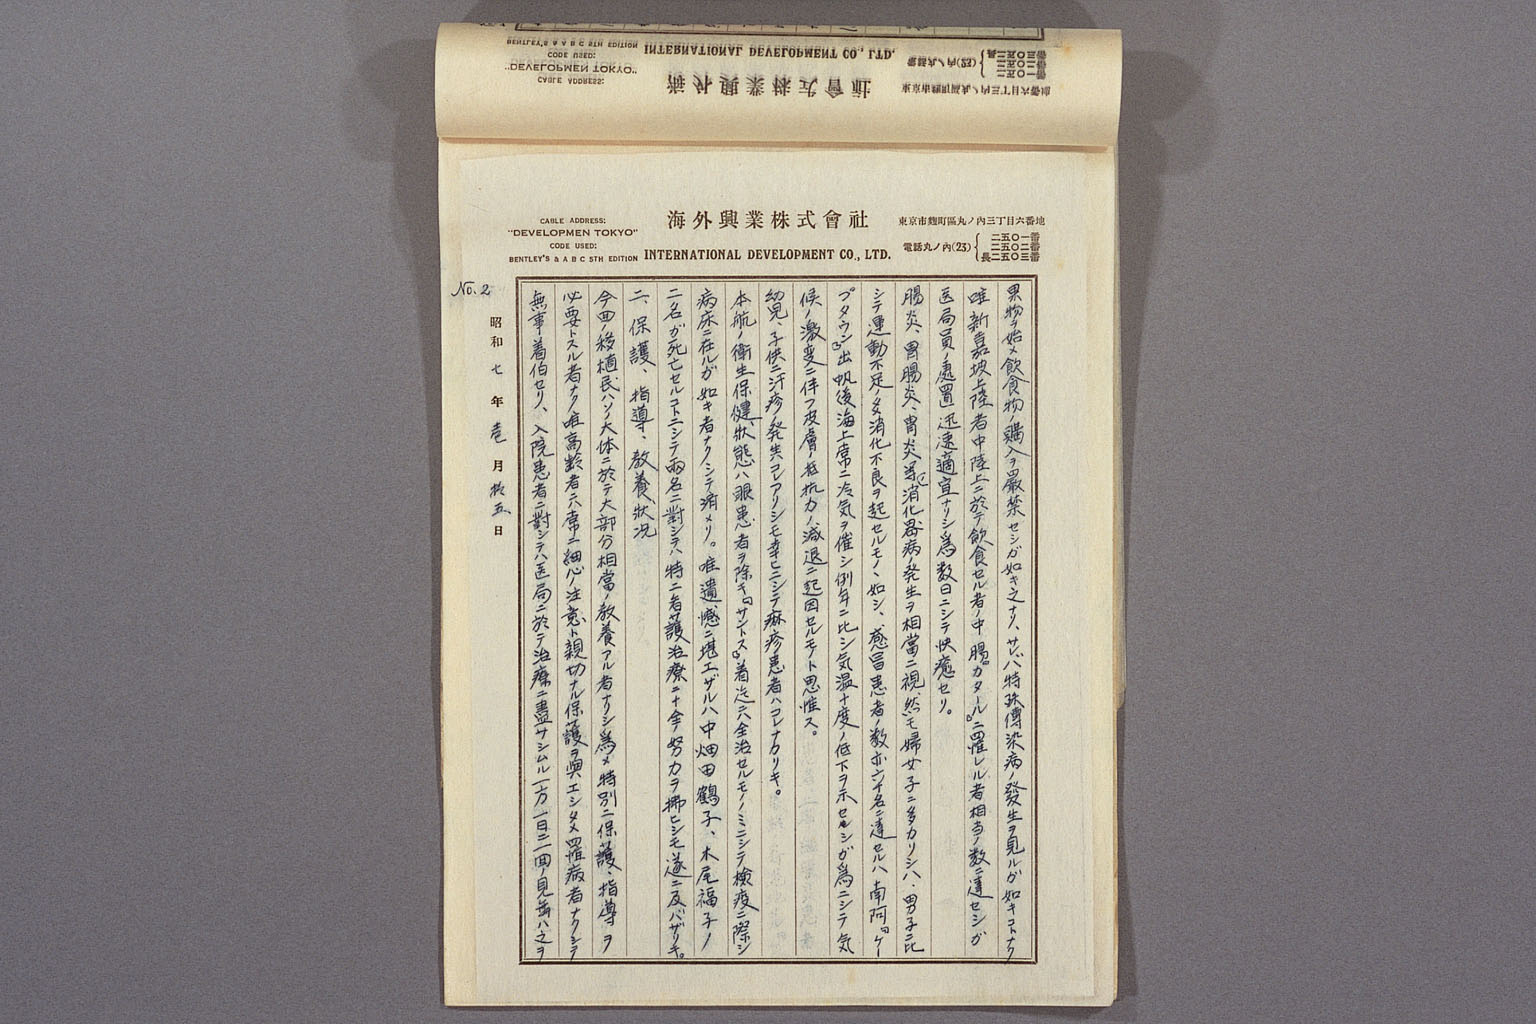 CABLE ADDRESS:
"DEVELOPMEN TOKYO"
CODE USED:
BENTLEY'S & A B C 5TH EDITION
海外興業株式會社
INTERNATIONAL DEVELOPMENT CO., LTD.
東京市麴町區丸ノ內三丁目六番地
電話丸ノ內(23)
二五〇一番
二五〇二番
長二五〇三番
果物ヲ始メ飲食物ノ購入ヲ嚴禁セシガ如キ之ナリ、サレバ特殊傳染病ノ發生ヲ見ルガ如キコトナク
唯新嘉坡上陸者中陸上ニ於テ飲食セル者ノ中腸「カタール」ニ罹レル者相当ノ数ニ達セシガ
医局員ノ處置迅速適宜ナリシ爲数日ニシテ快癒セリ。
腸炎、胃腸炎、胃炎等消化器病ノ発生ヲ相當ニ視、然モ婦女子ニ多カリシハ、男子ニ比
シテ運動不足ノ爲消化不良ヲ起セルモノヽ如シ、感冒患者ノ数亦六千名ニ達セルハ南阿「ケー
プタウン」出帆後海上常ニ冷気ヲ催シ例年ニ比シ気温十度ノ低下ヲ示セルシガ爲ニシテ気
候ノ激変ニ伴フ皮膚ノ抵抗力ノ減退ニ起因セルモノト思惟ス。
幼児、子供ニ汗疹ノ発生コレアリシモ幸ヒニシテ麻疹患者ハコレナカリキ。
本航ノ衛生保健狀態ハ眼患者ヲ除キ「サントス」着迄ニハ全治セルモノノミニシテ檢疫ニ際シ
病床ニ在ルガ如キ者ナクシテ済メリ。唯遺憾ニ堪エザルハ中畑田鶴子、木尾福子ノ
二名ガ死亡セルコトニシテ両名ニ對シテハ特ニ看護治療ニ十全ノ努力ヲ拂ヒシモ遂ニ及バザリキ。
二、保護、指導、教養狀況
今回ノ移植民ハソノ大体ニ於テ大部分相當ノ教養アル者ナリシ爲メ特別ニ保護、指導ヲ
必要トスル者ナク唯高齢者ニハ常ニ細心ノ注意ト親切ナル保護ヲ與エシタメ罹病者ナクシテ
無事着伯セリ、入院患者ニ對シテハ医局ニ於テ治療ニ盡サシムル一方一日ニ二回ノ見舞ハ之ヲ
昭和七年壱月拾五日
No. 2